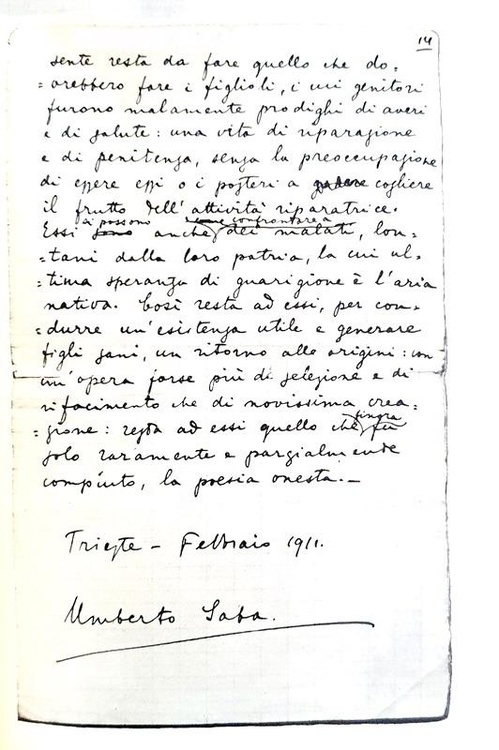 14
sente resta da fare quello che do:
=vrebbero fare i figlioli, i cui genitori
furono malamente prodighi di averi
e di salute: una vita di riparazione
e di penitenza, senza la preoccupazione
di essere essi o i posteri a godere cogliere
il frutto dell'attività riparatrice.
si possono confrontare a
Essi sono anche dei malati, lon:
=tani dalla loro patria, la cui ul:
=tima speranza di guarigione è l'aria
nativa. Così resta ad essi, per con:
=durre un'esistenza utile e generare
figli sani, un ritorno alle origini: con
un'opera forse più di selezione e di
rifacimento che di novissima crea:
finora
=zione: resta ad essi quello che fu
solo raramente e parzialmente
compiuto, la poesia onesta.—
Trieste – Febbraio 1911.
Umberto Saba.